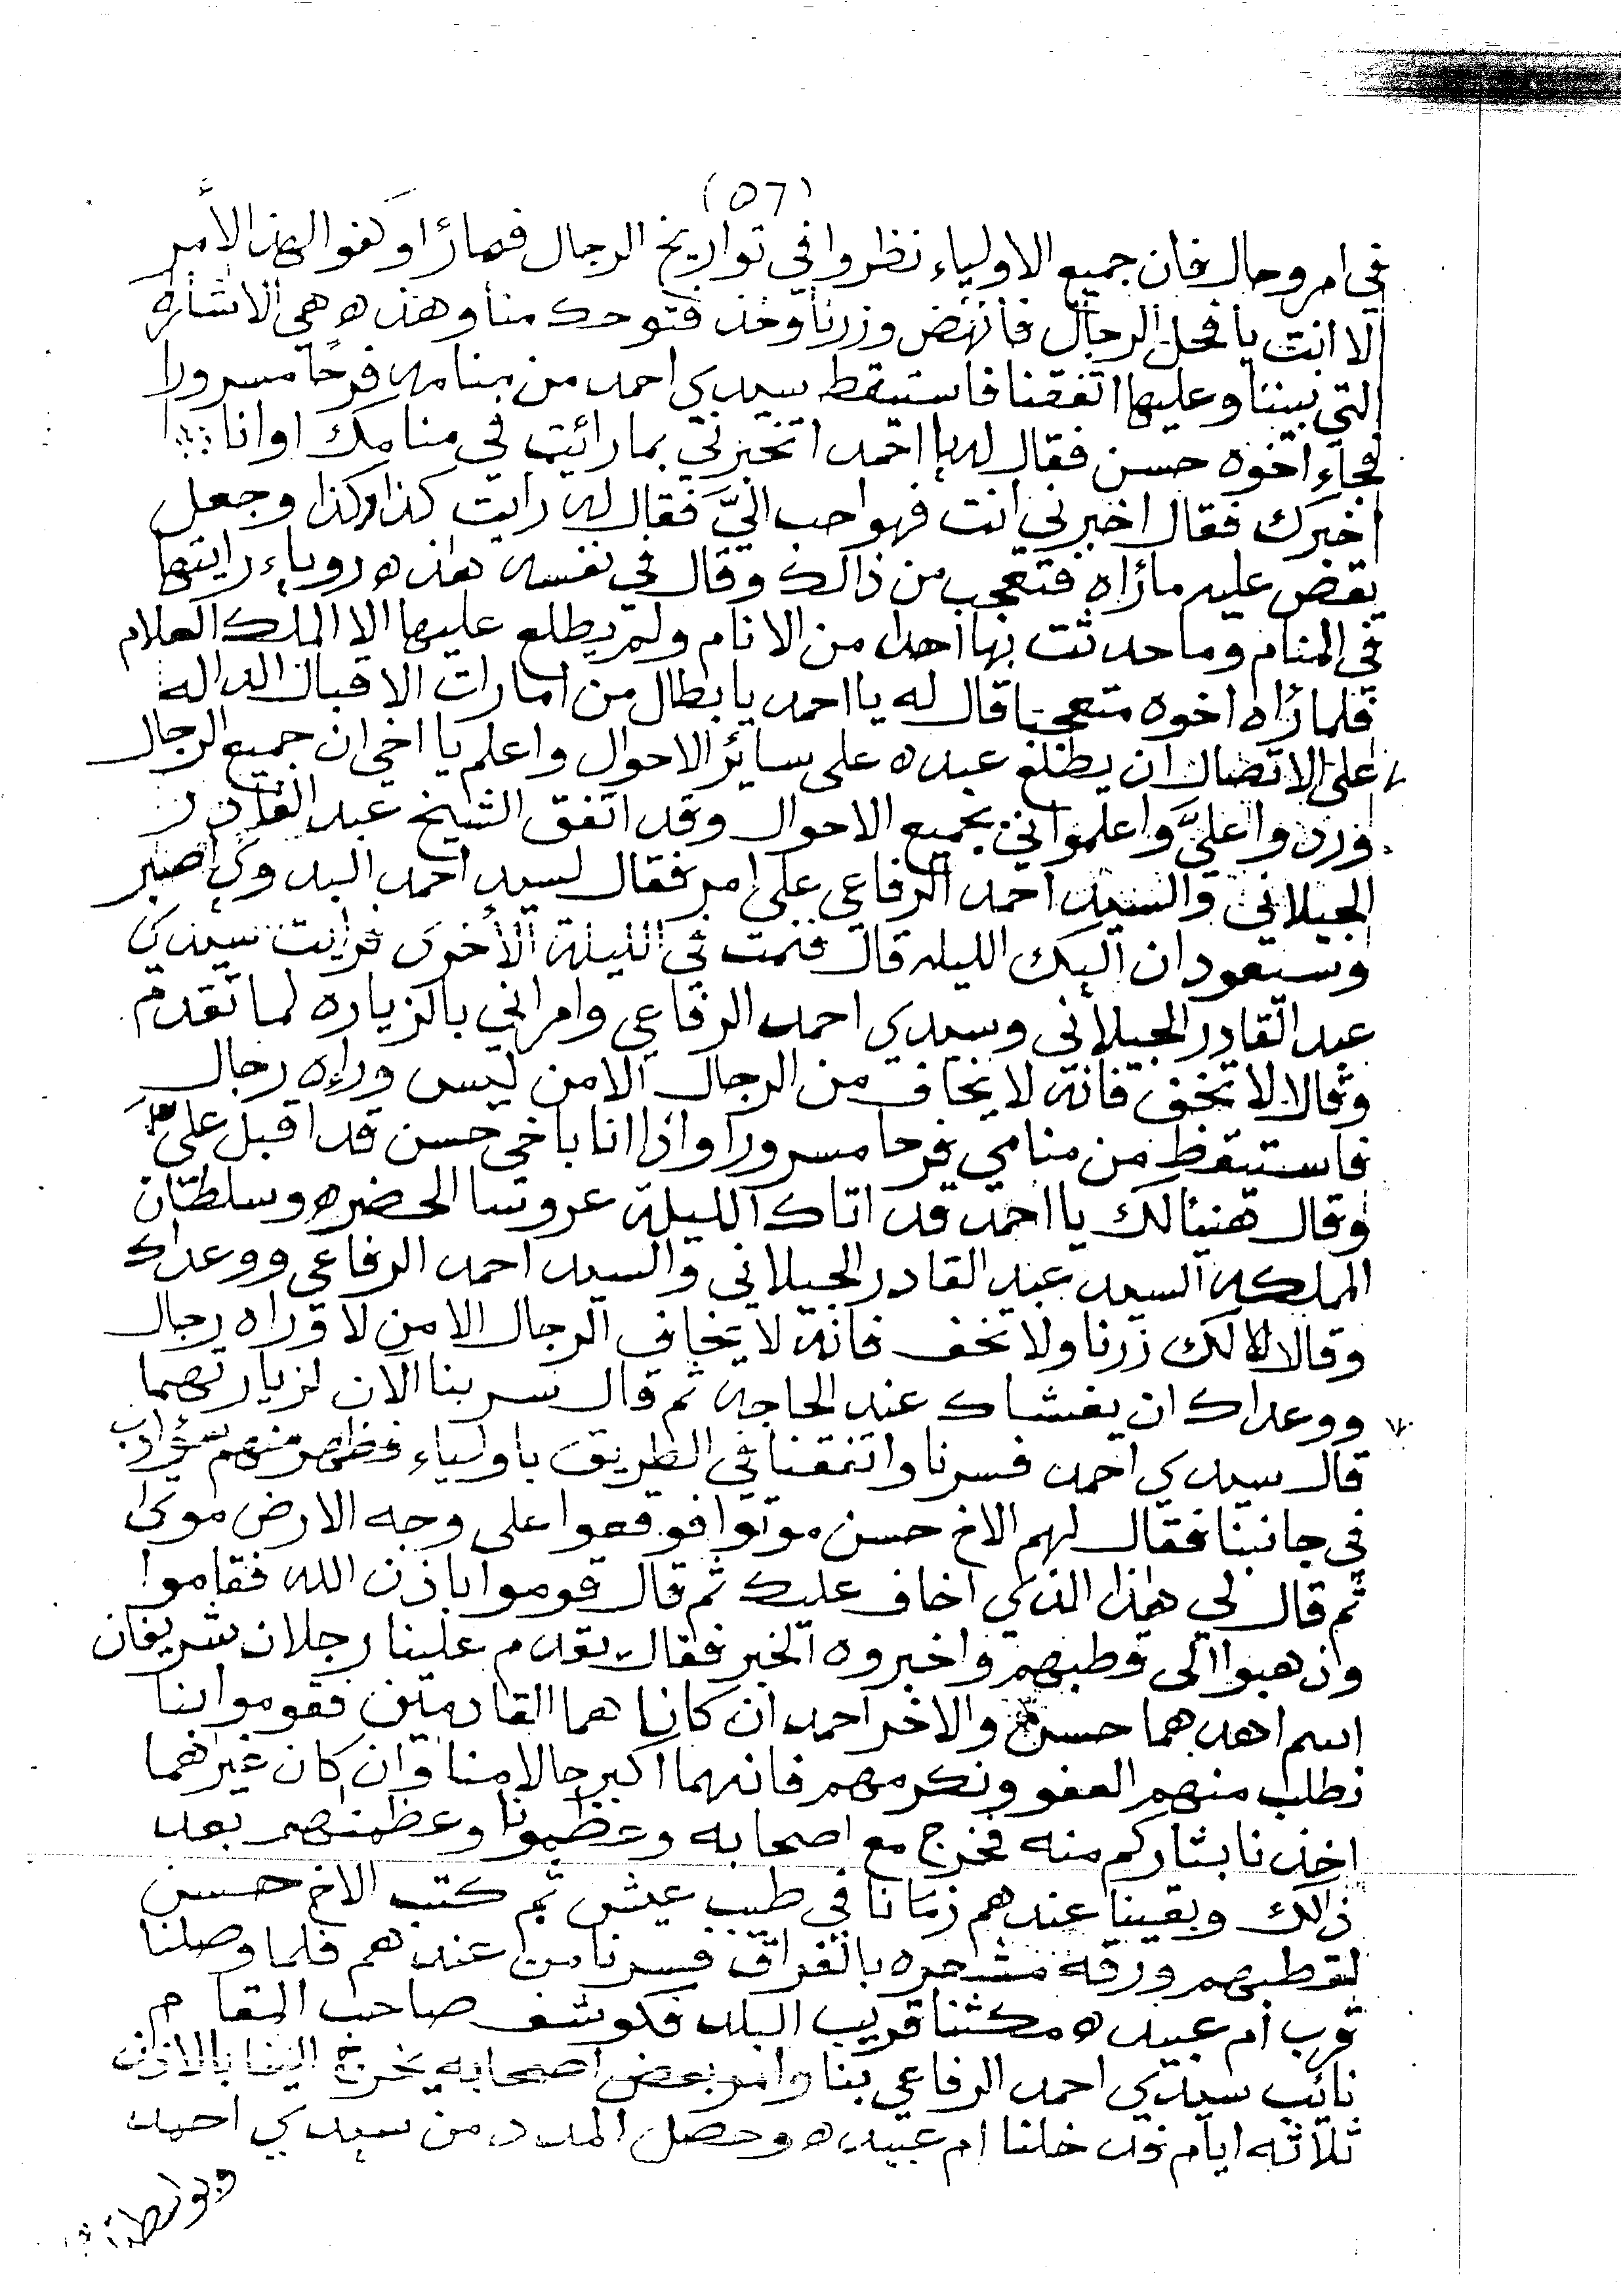 (٥٦)
في امر وحال فان جميع الاولياء نظروا في تواريخ الرجال فمارٔاو كفوا لهذا الأمر
الا انت يا فحل الرجال فانهض وزرنا وخذ فتوحك منا وهذه هي الاشاره
التي بيننا وعليها اتفقنا فاستيقظ سيدي احمد من منامه فرحًا مسرورا
فجاء اخوه حسن فقال له يا احمد اتخبرني بما رائيت في منامك او انا
اخبرك فقال اخبرني انت فهو احب اليَّ فقال له رايت كذا وكذا وجعل
يقض عليه مارٔاه فتعجب من ذالك وقال في نفسه هذه روياء رايتها
في المنام وما حدثت بها احدا من الانام ولم يطلع عليها الا الملك العلام
فلما رٔاه اخوه متعجبا قال له يا احمد يا بطال من امارات الاقبال الداله
على الاتصال ان يطلع عبده على سائر الاحوال واعلم يا اخي ان جميع الرجال
وردوا عليَّ واعلمواني بجميع الاحوال وقد اتفق الشيخ عبد القادر
الجيلاني والسيد احمد الرفاعي على امر فقال لسيد احمد البدوي اصبر
وسيعودان اليك الليله قال فنمت في الليلة الأخرى فرايت سيدي
عبد القادر الجيلاني وسيدي احمد الرفاعي وامراني بالزياره لما تقدم
وقالا لا تخف فانه لا يخاف من الرجال الامن ليس وراءه رجال
فاستيقظ من منامي فرحا مسرورا واذا انا باخي حسن قد اقبل عليَّ
وقال هنيئا لك يا احمد قد اتاك الليلة عروسا الحضره وسلطان
المملكه السيد عبد القادر الجيلاني والسيد احمد الرفاعي ووعداك
وقالا لك زرنا ولا تخف فانه لا يخاف الرجال الامن لا وراه رجال
ووعداك ان يغشاك عند الحاجه ثم قال سر بنا الان لزيارتهما
قال سيدي احمد فسرنا واتفقنا في الطريق باولياء فظهر منهم
في جانبنا فقال لهم الاخ حسن موتوا فوقعوا على وجه الارض موتى
ثم قال لي هذا الذي اخاف عليك ثم قال قوموا باذن الله فقاموا
وذهبوا الى قطبهم واخبروه الخبر فقال يقدم علينا رجلان شريفان
اسم احدهما حسن والاخر احمد ان كانا هما القادمين فقوموا بنا
نطلب منهم العفو ونكرمهم فانهما اكبر حالا منا وان كان غيرهما
اخذنا بثاركم منه فخرج مع اصحابه وعظمونا وعظمنهم بعد
ذالك وبقينا عندهم زمانا في طيب عيش ثم كتب الاخ حسن
لقطبهم ورقة مشعره بالفراق فسرنا من عندهم فلما وصلنا
قرب ام عبيده مكثنا قريب البلد فكوشف صاحب المقام
نائب سيدي احمد الرفاعي بنا وامر بعض اصحابه يخرج الينا بالاذن
ثلاثه ايام فدخلنا ام عبيده وحصل المدد من سيدي احمد